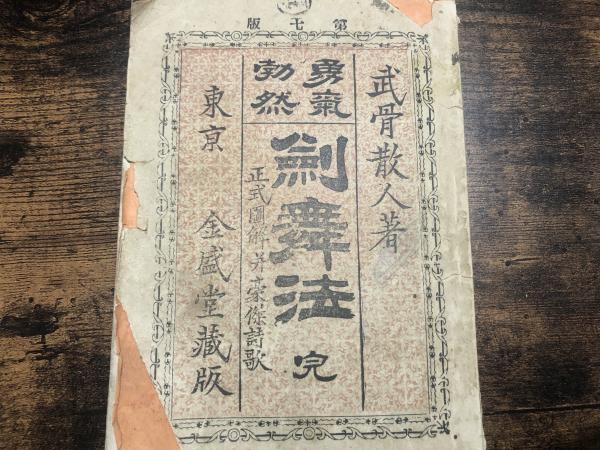 第七版
武骨散人著
勇氣
勃然
劍舞法 完
正式圖解并豪傑詩歌
東京 金盛堂藏版